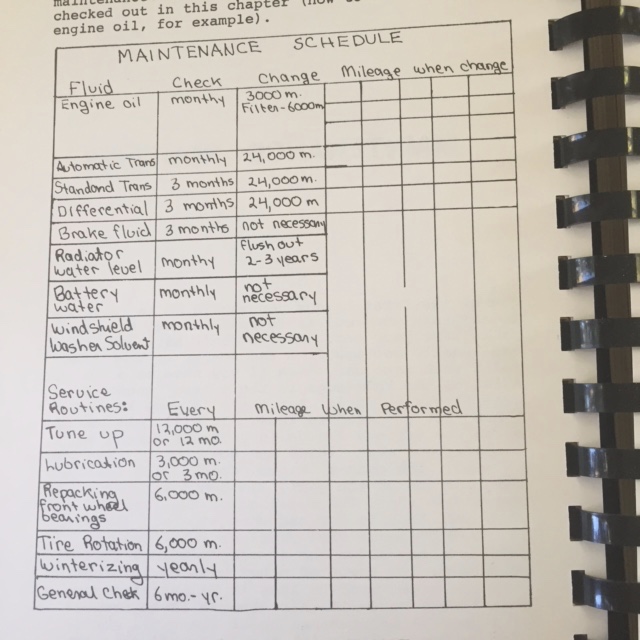 checked out in this chapter
engine oil, for example).
MAINTENANCE SCHEDULE
Fluid Check Change Mileage when change
Engine oil monthy 3000 m.
Filter-6000m
Automatic Trans monthly 24,000 m.
Standard Trans 3 months 24,000m.
Differential 3 months 24,000 m
Brake fluid 3 months not necessary
Radiator
water level monthy Flush out
2-3 years
Battery
water monthly not
necessary
Windshield
Washer Solvent monthly not
necessary
Service
Routines: Every Mileage When Performed
Tune up 12,000 m
or 12 mo.
Lubrication 3,000 m.
or 3 mo.
Repacking
front wheel
bearings 6,000 m.
Tire Rotation 6,000 m.
Winterizing yearly
General Chek 6 mo.- yr.